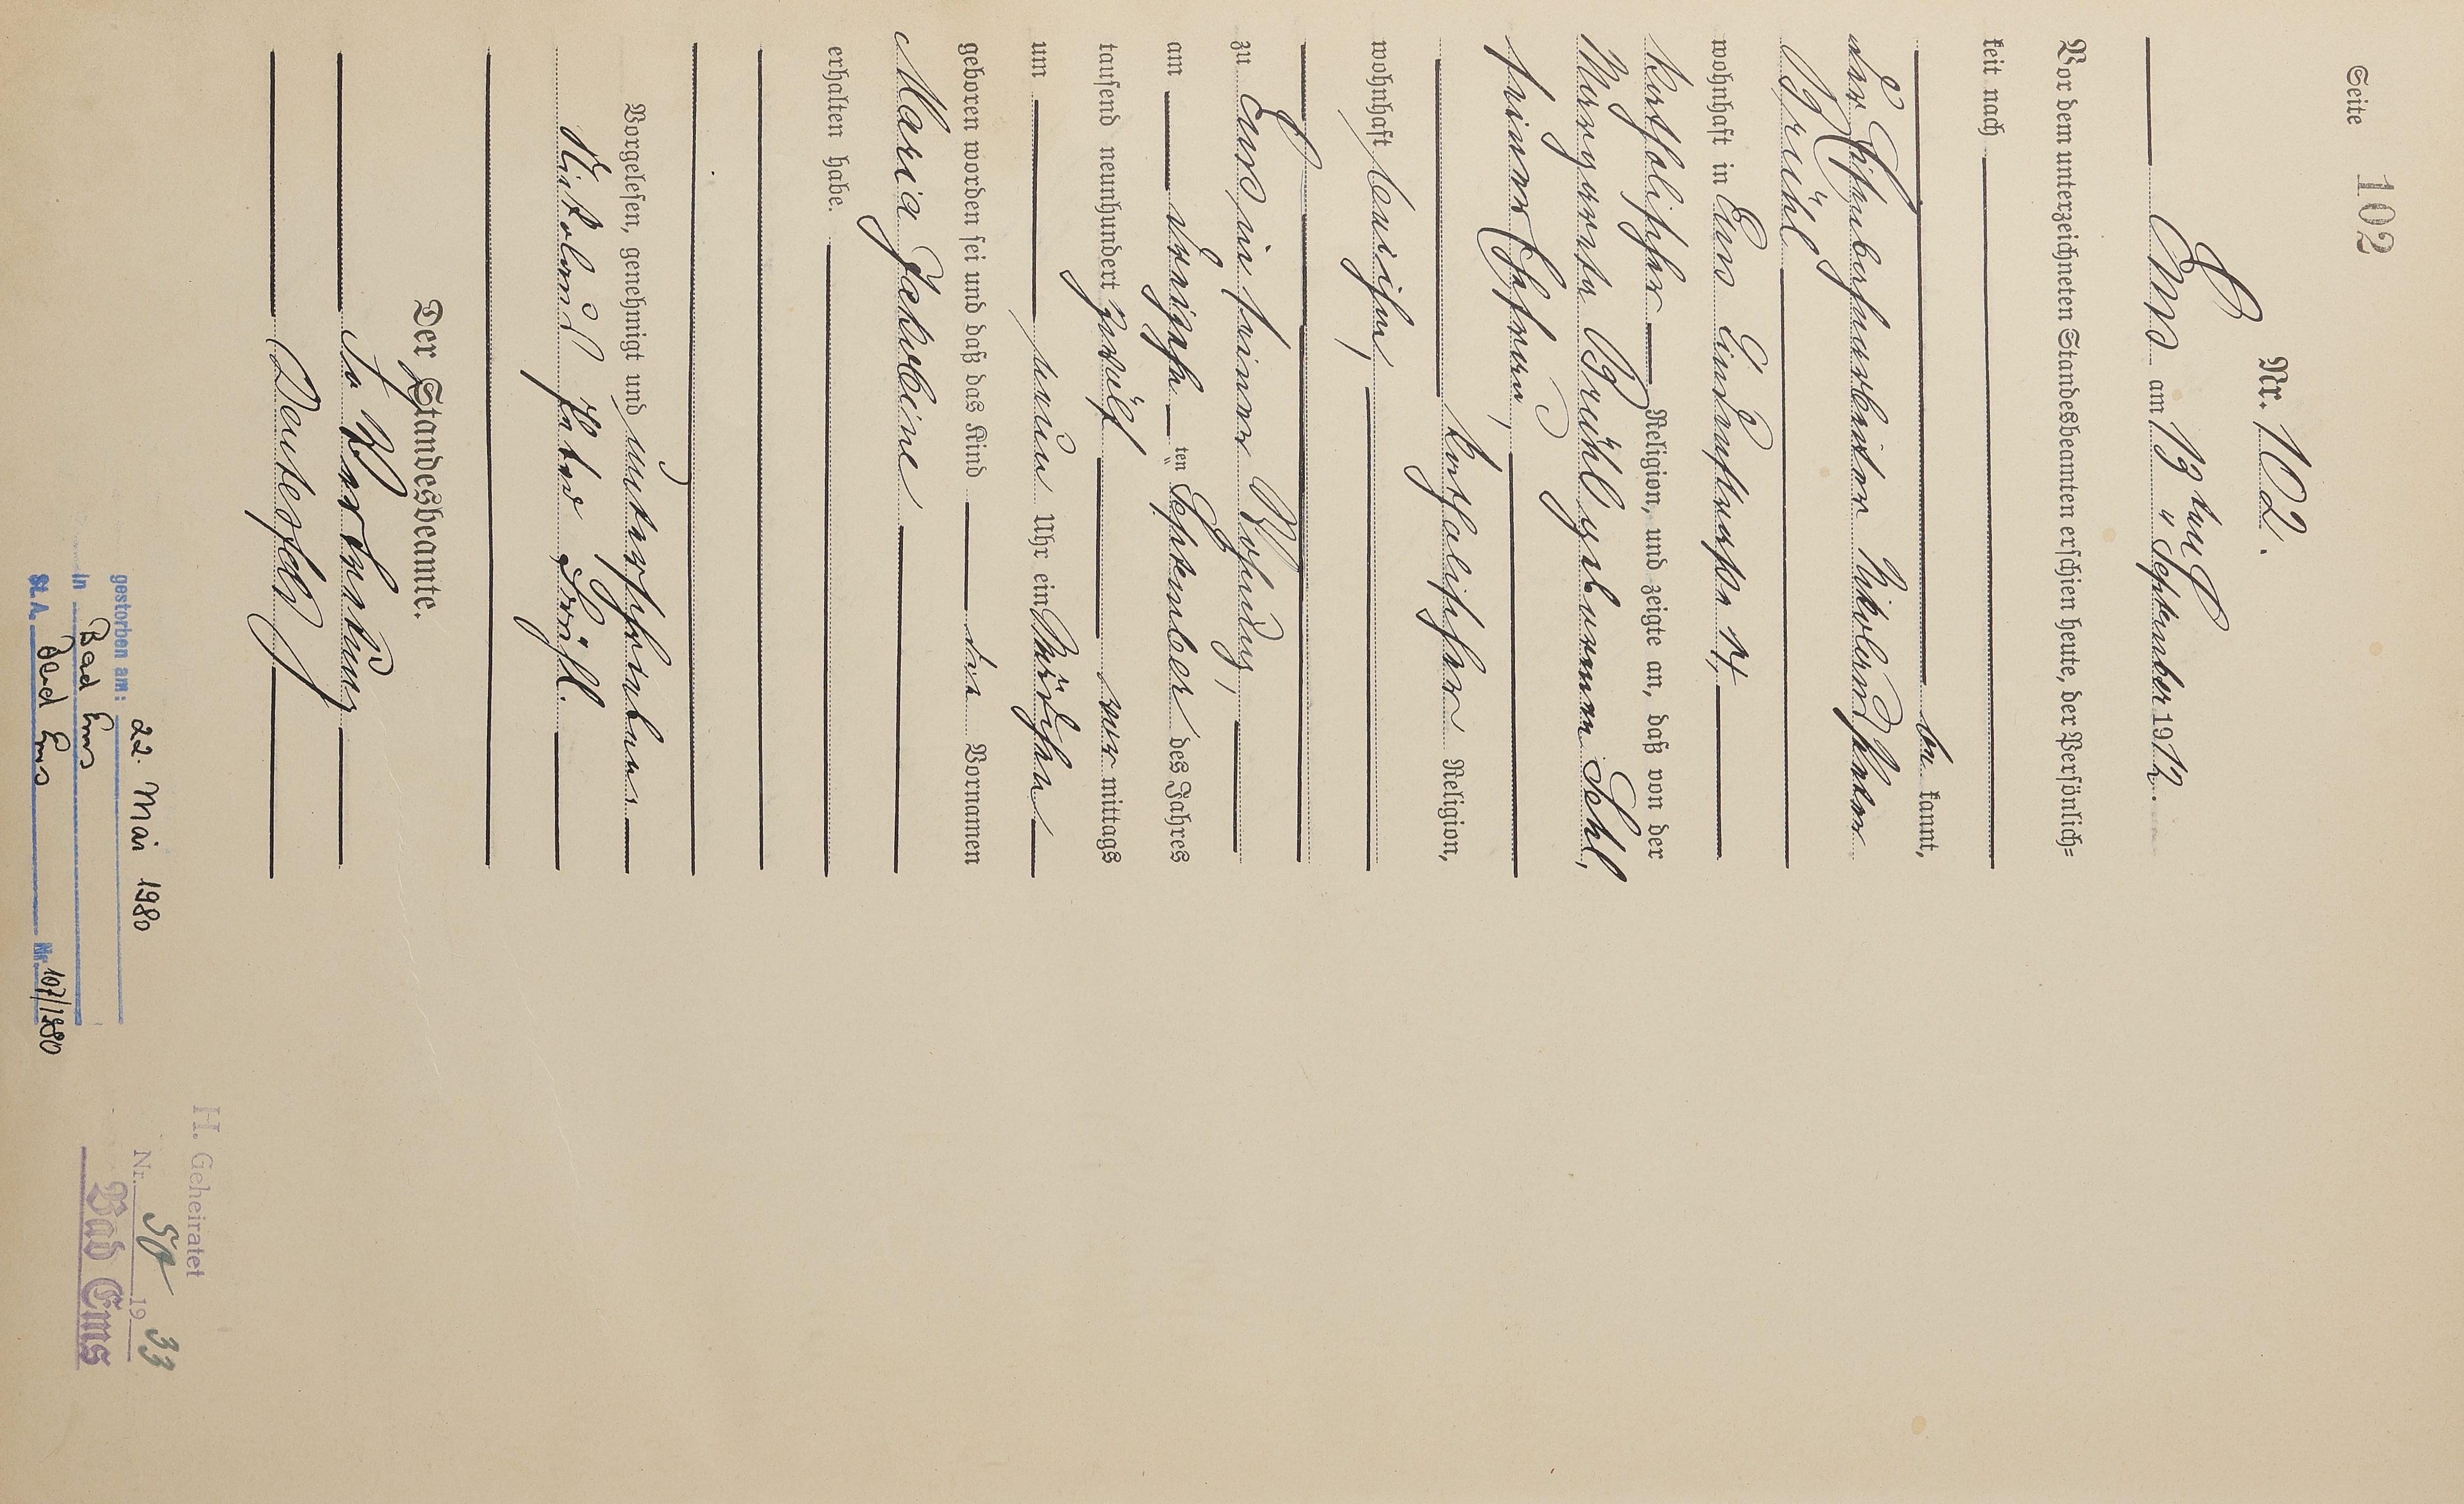 Seite 102
Nr. 102.
Ems am 13ten " September 1912.
Vor dem unterzeichneten Standesbeamten erschien heute, der Persönlich=
keit nach
be kannt,
der Eisenbahnarbeiter Nikolaus Peter
Brühl
wohnhaft in Ems Lindenstraße 14,
katholischer Religion, und zeigte an, daß von der
Margareta Brühl geborenen Sehl,
seiner Ehefrau,
katholischer Religion,
wohnhaft bei ihm,
zu Ems in seiner Wohnung,
am dreizehn ten September des Jahres
tausend neunhundert zwölf vor mittags
um neun Uhr ein Mädchen
geboren worden sei und daß das Kind die Vornamen
Maria Jakobine
erhalten habe.
Vorgelesen, genehmigt und unterschrieben
Nikolaus Peter Brühl.
Der Standesbeamte.
In Vertretung
gestorben am: 22. Mai 1980
in Bad Ems
St. A. Bad Ems Nr. 107/1980
H. Geheiratet
Nr. 50 1933
Bad Ems